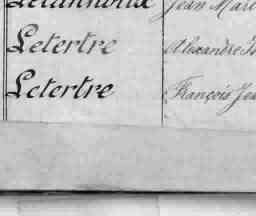 Jean Mar
Letertre Alexandre
Letertre François